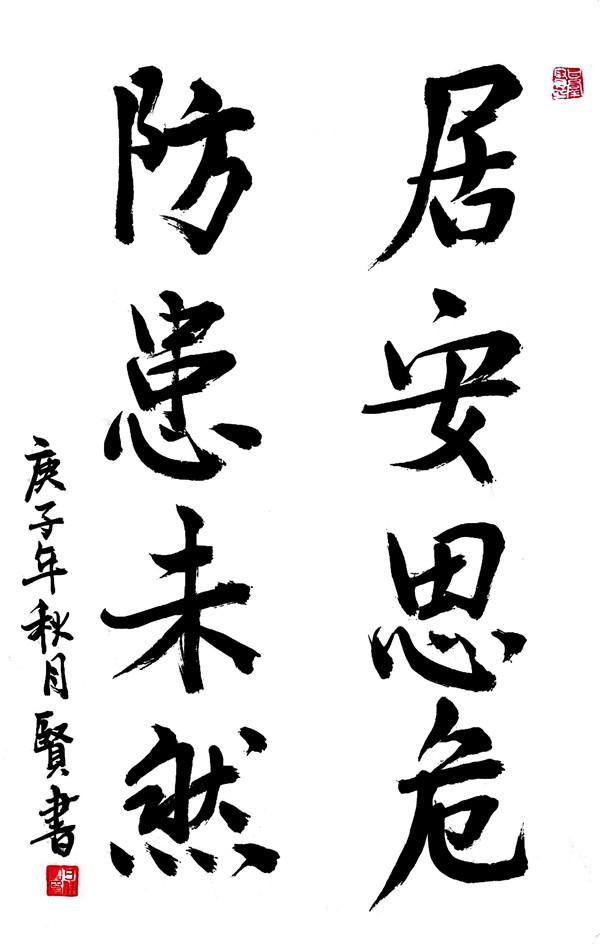 居安思危
防患未然
庚子年秋月賢書